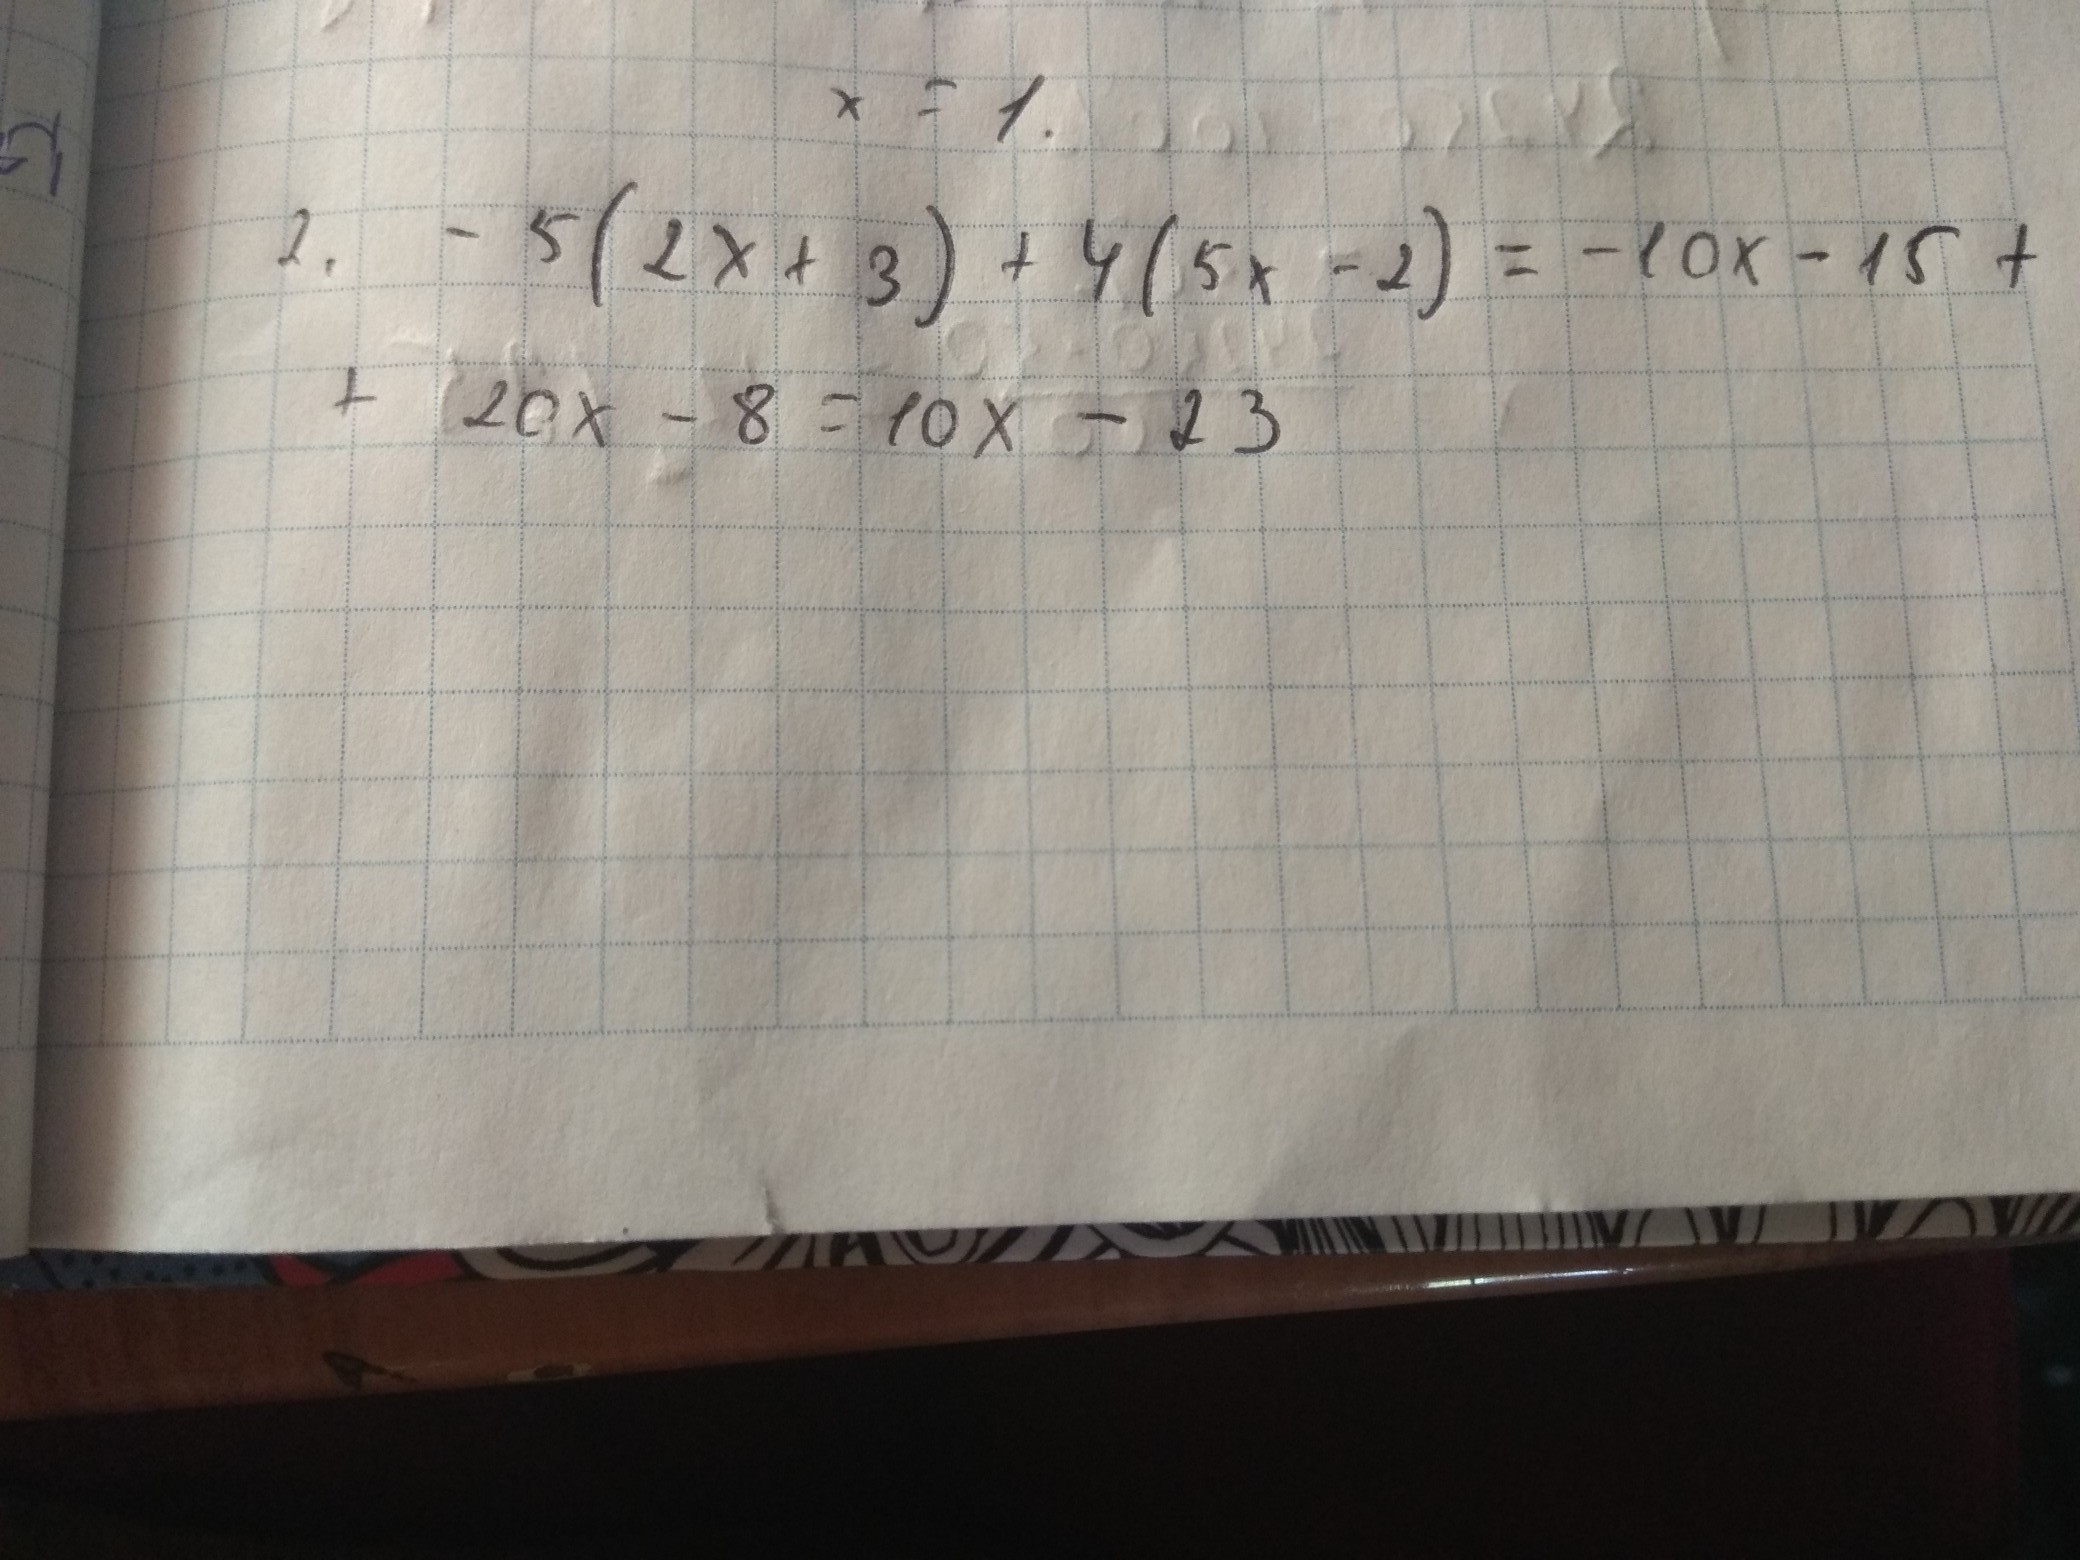 x = 1.
2. - 5(2x + 3) + 4(5x - 2) = -10x - 15 +
+ 20x - 8 = 10x - 23